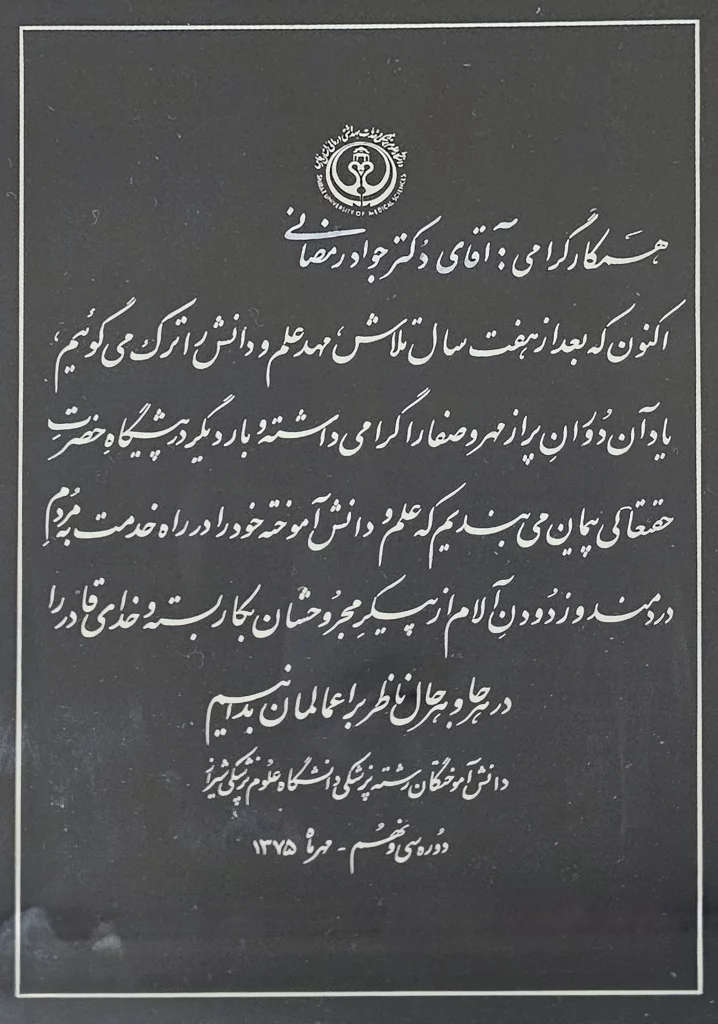 SHIRAZ UNIVERSITY OF MEDICAL SCIENCES
همکار گرامی: آقای دکتر جواد رمضانی
اکنون که بعد از هفت سال تلاش، مهد علم و دانش را ترک می گوئیم،
یاد آن دُوران پر از مهر و صفا را گرامی داشته و بار دیگر در پیشگاهِ حضرتِ
حقتعالی پیمان می بندیم که علم و دانش آموخته خود را در راه خدمت به مَردُم
دردمند و زدُودنِ آلام از پیکرِ مجرُوحشان بکار بسته و خدای قادر را
در هرجا و بهرحال ناظر بر اعمالمان بدانیم
دانش آموختگان رشته پزشکی دانشگاه علوم پزشکی شیراز
دُوره سی و نهُم - مهرماه ۱۳۷۵